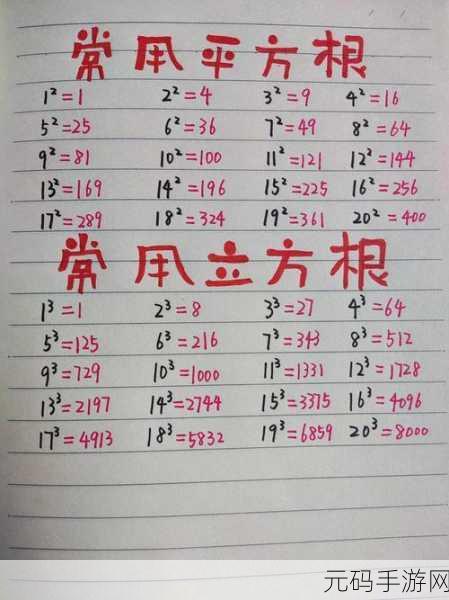 常用平方根
1²=1 2²=4 3²=9 4²=16
5²=25 6²=36 7²=49 8²=64
9²=81 10²=100 11²=121 12²=144
13²=169 14²=196 15²=225 16²=256
17²=289 18²=324 19²=361 20²=400
常用立方根
1³=1 2³=8 3³=27 4³=64
5³=125 6³=216 7³=343 8³=512
9³=729 10³=1000 11³=1331 12³=1728
13³=2197 14³=2744 15³=3375 16³=4096
17³=4913 18³=5832 19³=6859 20³=8000
元码手游网